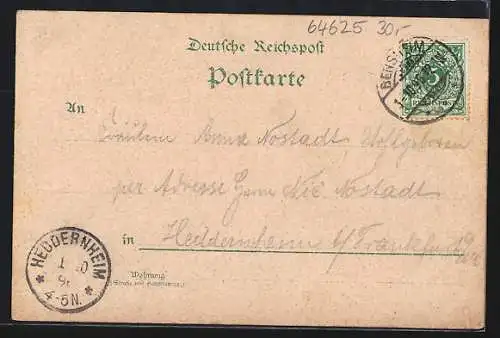 64625 30,-
Deutsche Reichspost
Postkarte
BENSHEIM
An
Fräulein Anna Nostadt Wohlgeboren
per Adresse Herrn Nic. Nostadt
in Heddernheim b/ Frankfurt
HEDDERNHEIM
4-5N.
Wohnung